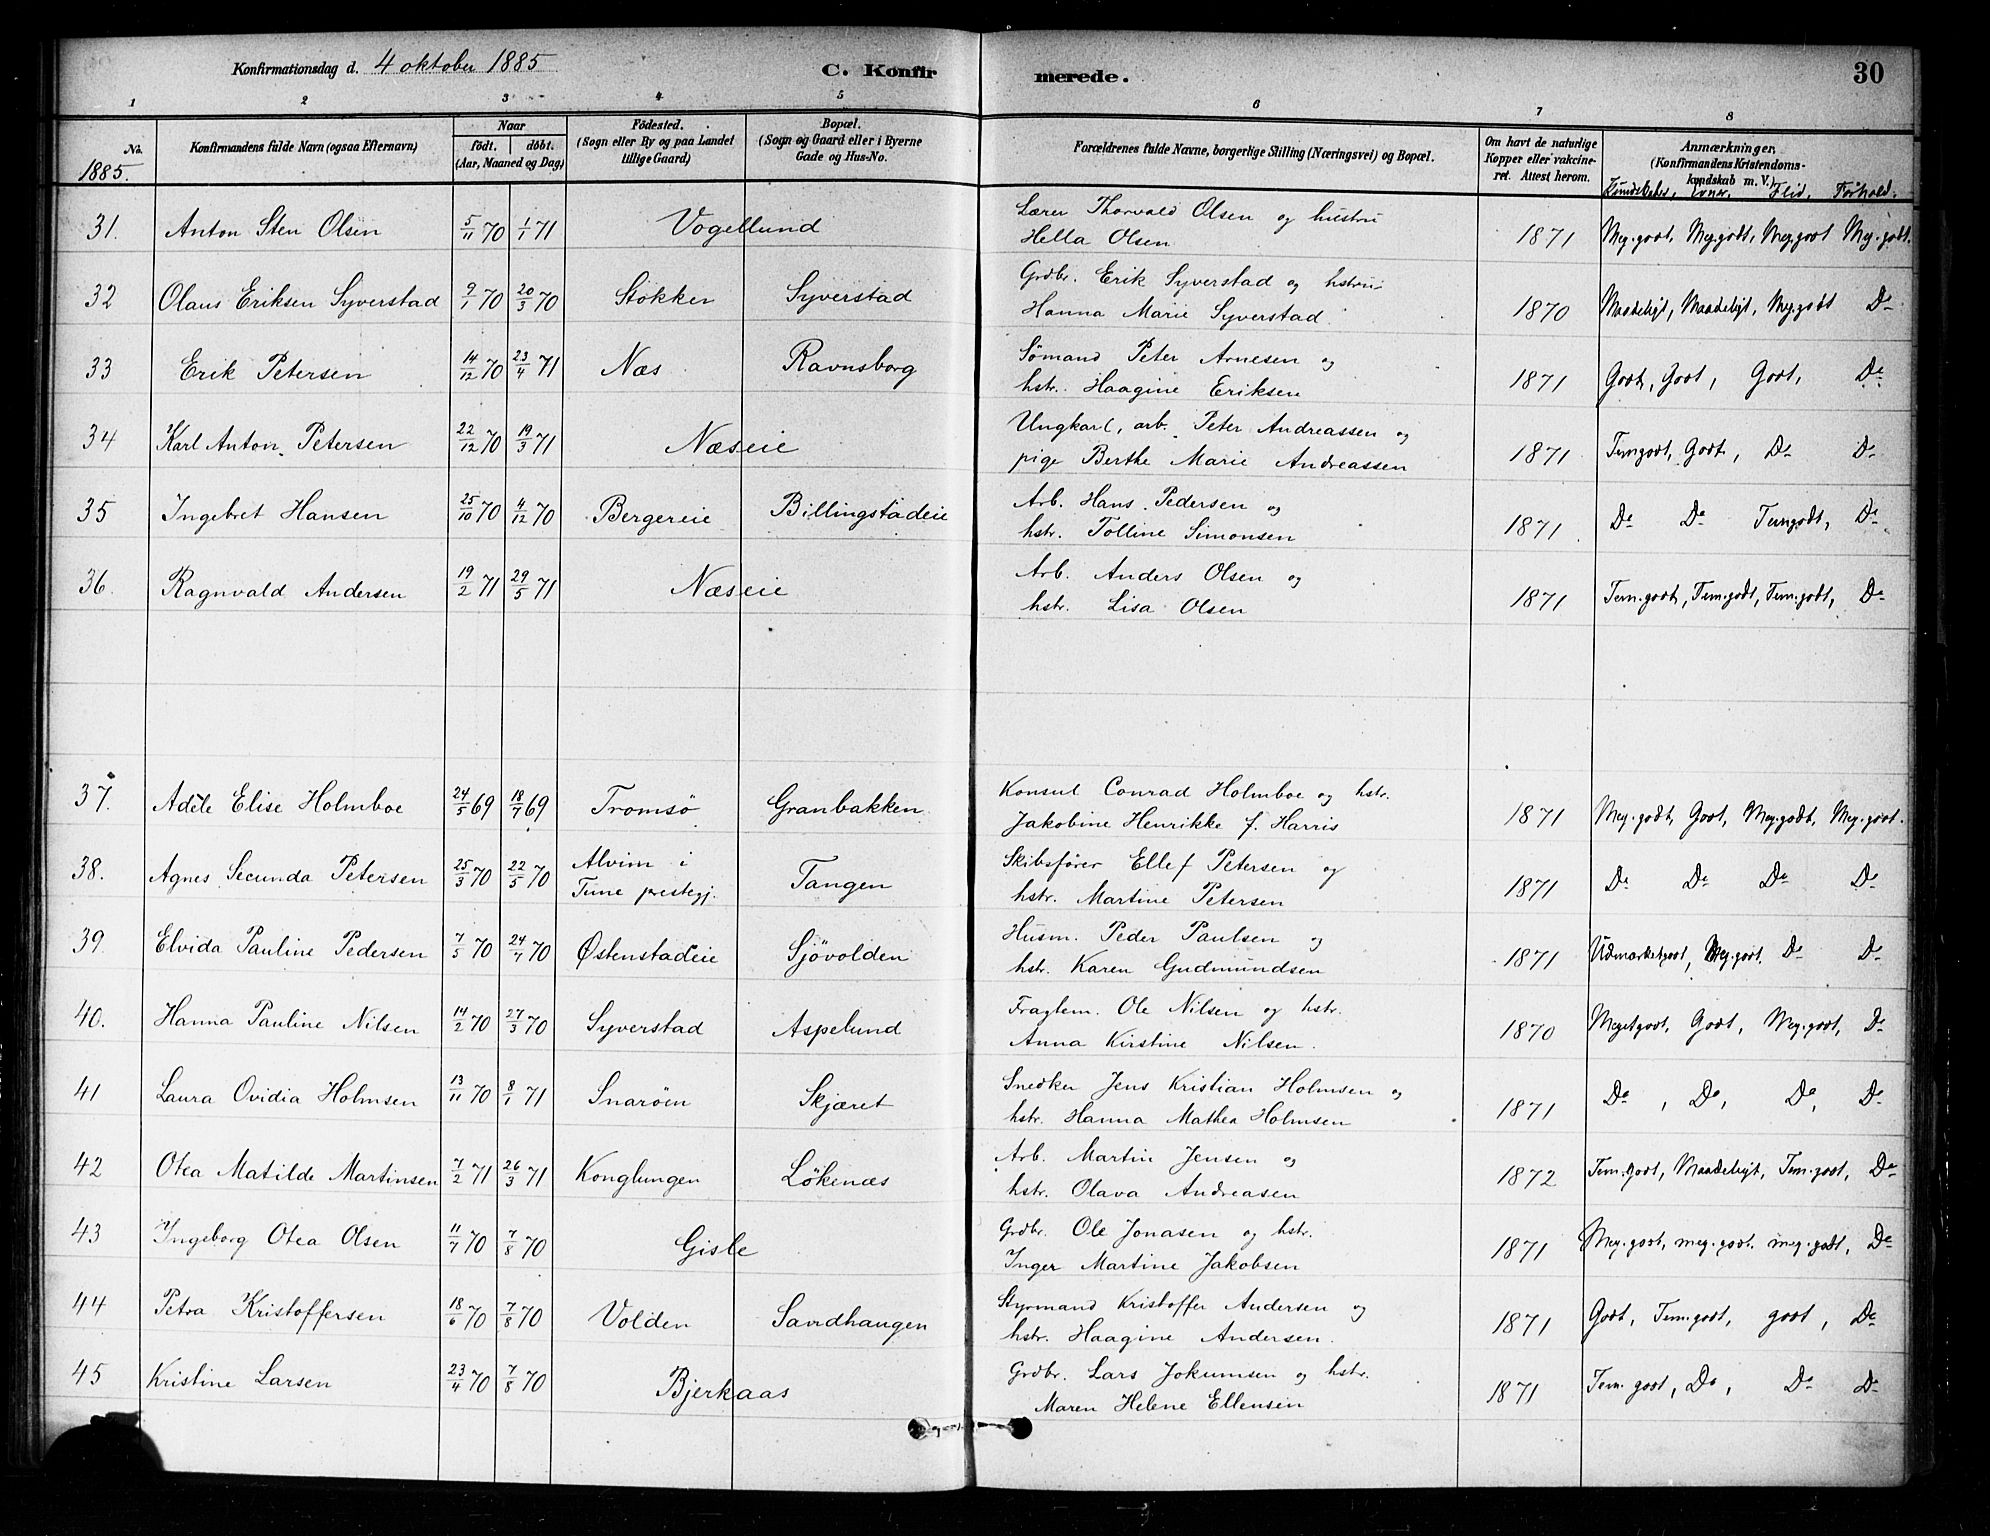 Konfirmationsdag d. 4 oktober 1885
C. Konfirmerede.
30
1 2 3 4 5 6 7 8
No. 1885.
Konfirmandens fulde Navn (ogsaa Efternavn)
Naar født. døbt. (Aar, Maaned og Dag)
Fødested. (Sogn eller By og paa Landet tillige Gaard)
Bopæl. (Sogn og Gaard eller i Byerne Gade og Hus-No.
Forældrenes fulde Navne, borgerlige Stilling (Næringsvei) og Bopæl.
Om havt de naturlige Kopper eller vakcineret. Attest herom.
Anmærkninger, (Konfirmandens Kristendomskundskab m. V.)
Kundskaber, Evner, Flid, Forhold.
31. Anton Sten Olsen 5/11 70 1/1 71 Vogellund Lærer Thorvald Olsen og hustru
Hella Olsen 1871 Meg. godt, Meg. godt, Meg. godt Meg. godt.
32 Olaus Eriksen Syverstad 9/1 70 20/3 70 Stokker Syverstad Grdbr. Erik Syverstad og hstru
Hanna Marie Syverstad. 1870 Maadeligt, Maadeligt, Meg. godt Do
33 Erik Petersen 14/12 70 23/4 71 Næs Ravnsborg Sømand Peter Arnesen og
hstr. Haagine Eriksen 1871 Godt, Godt, Godt, Do
34 Karl Anton Petersen 22/12 70 19/3 71 Næseie Ungkarl, arb. Peter Andreassen og
pige Berthe Marie Andreassen 1871 Temgodt, Godt, Do Do
35 Ingebret Hansen 25/10 70 4/12 70 Bergereie Billingstadeie Arb. Hans Pedersen og
hstr. Tolline Simonsen 1871 Do Do Temgodt, Do
36. Ragnvald Andersen 19/2 71 29/5 71 Næseie Arb. Anders Olsen og
hstr. Lisa Olsen 1871 Tem. godt, Tem. godt, Tem. godt, Do
37. Adéle Elise Holmboe 24/5 69 18/7 69 Tromsø Granbakken Konsul Conrad Holmboe og hstr.
Jakobine Henrikke f. Harris 1871 Meg. godt, Godt, Meg. godt, Meg. godt.
38. Agnes Secunda Petersen 25/3 70 22/5 70 Alvim i Tune prestegj. Tangen Skibsfører Ellef Petersen og
hstr. Martine Petersen 1871 Do Do Do Do
39. Elvida Pauline Pedersen 7/5 70 24/7 70 Østenstadeie Sjøvolden Husm. Peder Paulsen og
hstr. Karen Gudmundsen 1871 Udmærketgodt, Meg. godt. Do Do
40. Hanna Pauline Nilsen 14/2 70 27/3 70 Syverstad Aspelund Fragtem. Ole Nilsen og hstr.
Anna Kirstine Nilsen. 1870 Megetgodt, Godt, Meg. godt, Do
41 Laura Ovidia Holmsen 13/11 70 8/1 71 Snarøen Skjæret Snedker Jens Kristian Holmsen og
hstr. Hanna Mathea Holmsen 1871 Do, Do, Do, Do
42 Otea Matilde Martinsen 7/2 71 26/3 71 Konglungen Løkenæs Arb. Martin Jensen og
hstr. Olava Andreasen 1872 Tem. godt, Maadeligt, Tem. godt, Do
43 Ingeborg Otea Olsen 11/7 70 7/8 70 Gisle Grdbr. Ole Jonasen og hstr.
Inger Martine Jakobsen 1871 Meg. godt, meg. godt. meg. godt, Do
44 Petra Kristoffersen 18/6 70 7/8 70 Volden Sandhaugen Styrmand Kristoffer Andersen og
hstr. Haagine Andersen. 1871 Godt, Tem. godt, godt, Do
45 Kristine Larsen 23/4 70 7/8 70 Bjerkaas Grdbr. Lars Jokumsen og hstr.
Maren Helene Ellensen 1871 Tem. godt, Do, Do Do